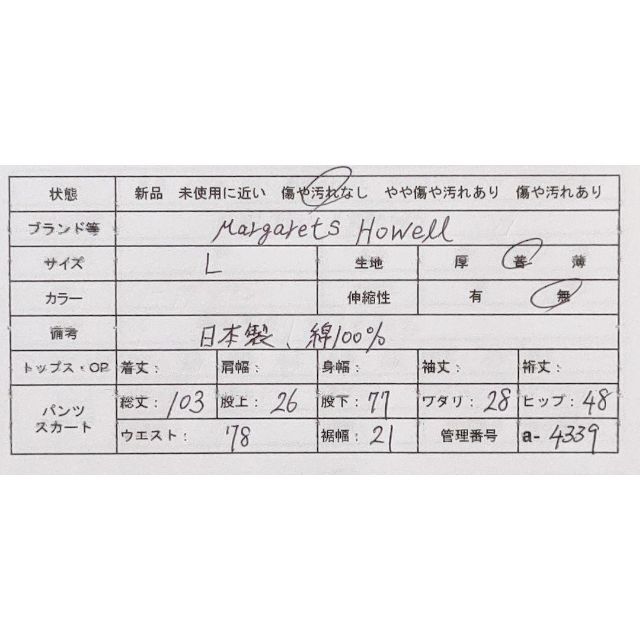 状態 新品 未使用に近い 傷や汚れなし やや傷や汚れあり 傷や汚れあり
ブランド等 Margarets Howell
サイズ L 生地 厚 普 薄
カラー 伸縮性 有 無
備考 日本製、綿100%
トップス・OP 着丈: 肩幅: 身幅: 袖丈: 裄丈:
パンツ スカート 総丈:103 股上:26 股下:77 ワタリ:28 ヒップ:48
ウエスト: 78 裾幅:21 管理番号 a-4339